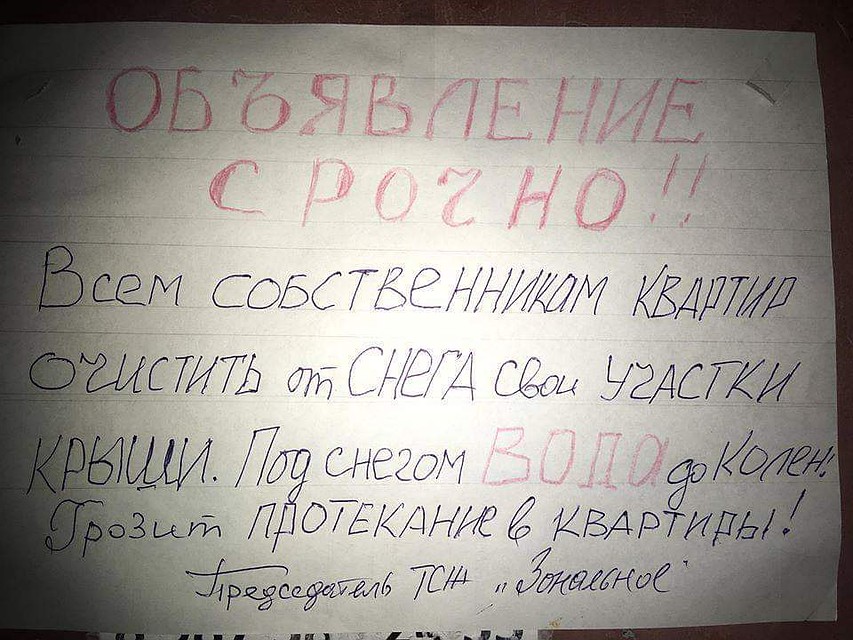 ОБЪЯВЛЕНИЕ
СРОЧНО!!
Всем собственникам квартир
очистить от снега свои участки
крыши. Под снегом вода до колен!
Грозит протекание в квартиры!
Председатель ТСЖ „Зональное"